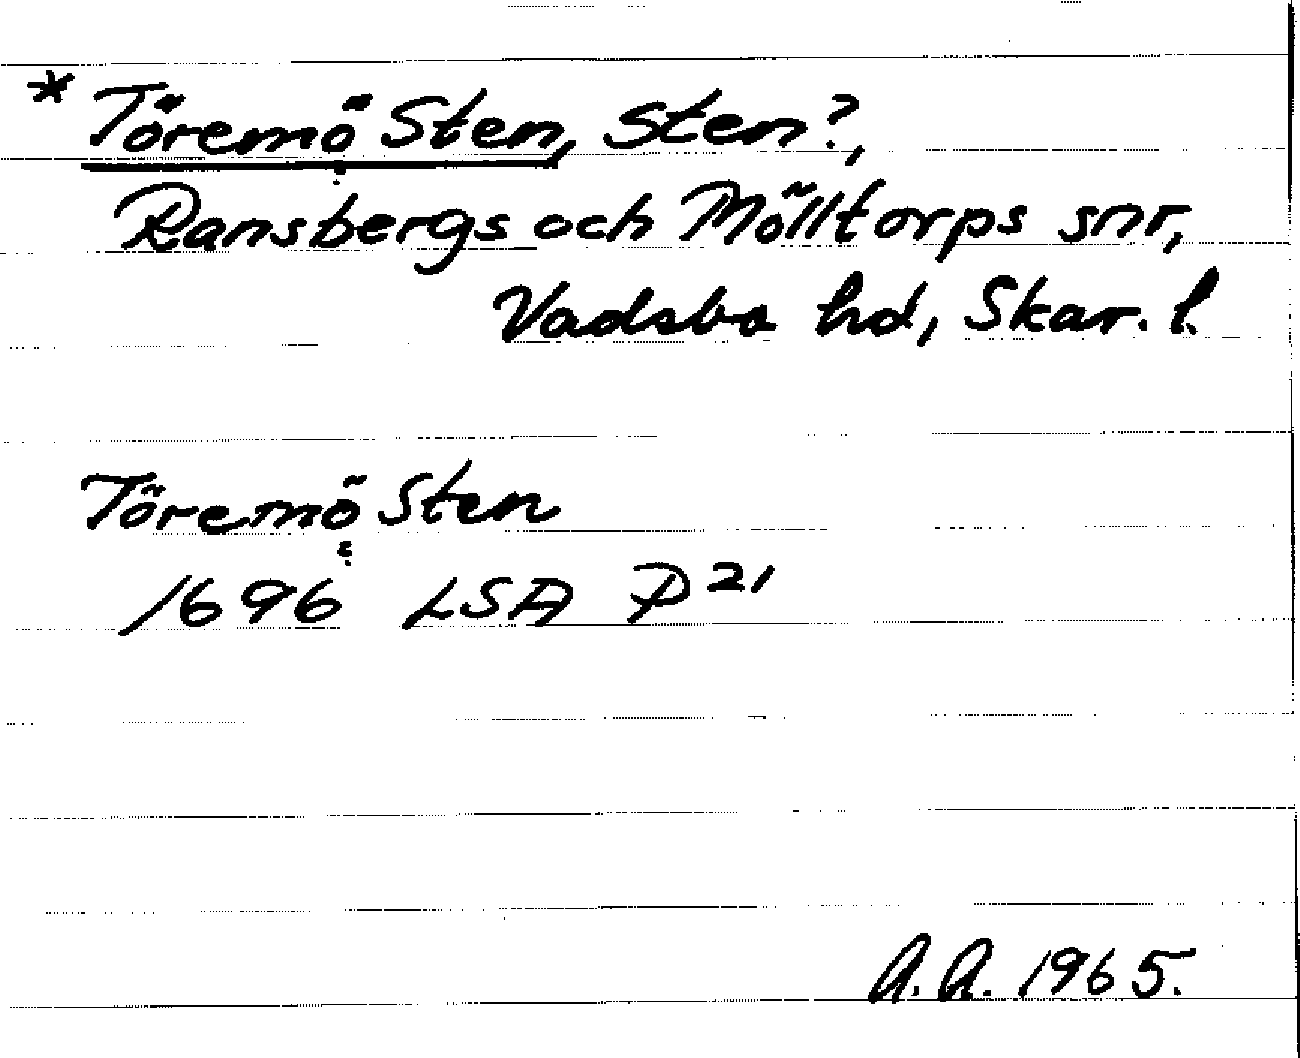 * Töremö Sten, sten?,
Ransbergs och Mölltorps snr,
Vadsbo hd, Skar. l.
Töremö Sten
?
1696 LSA P21
A.A. 1965.